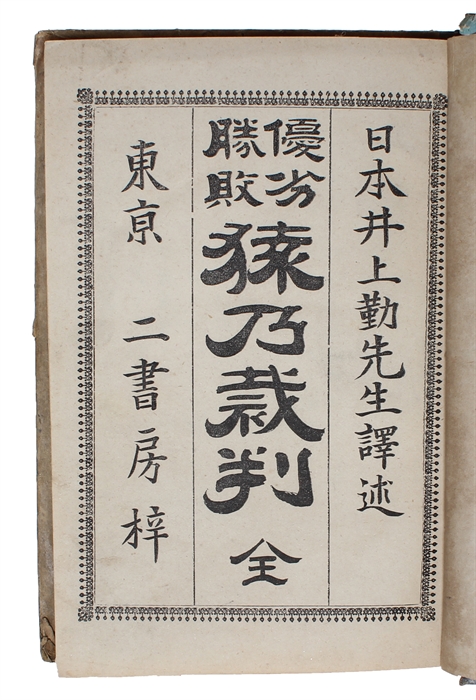 日本井上勤先生譯述
優劣
勝敗
猿乃裁判 全
東京 二書房梓